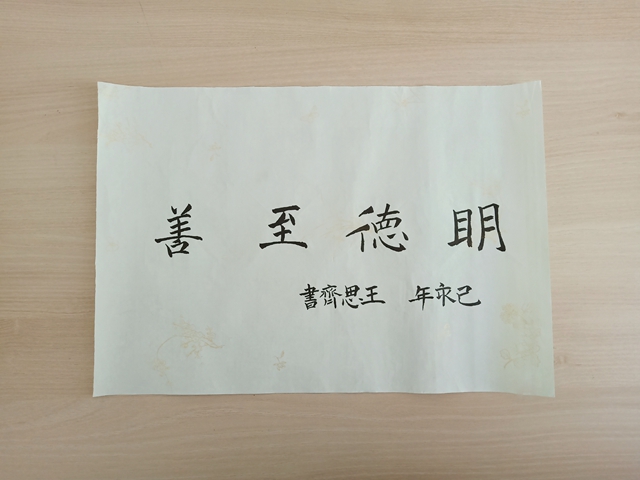 明德至善
己亥年 王思齊書